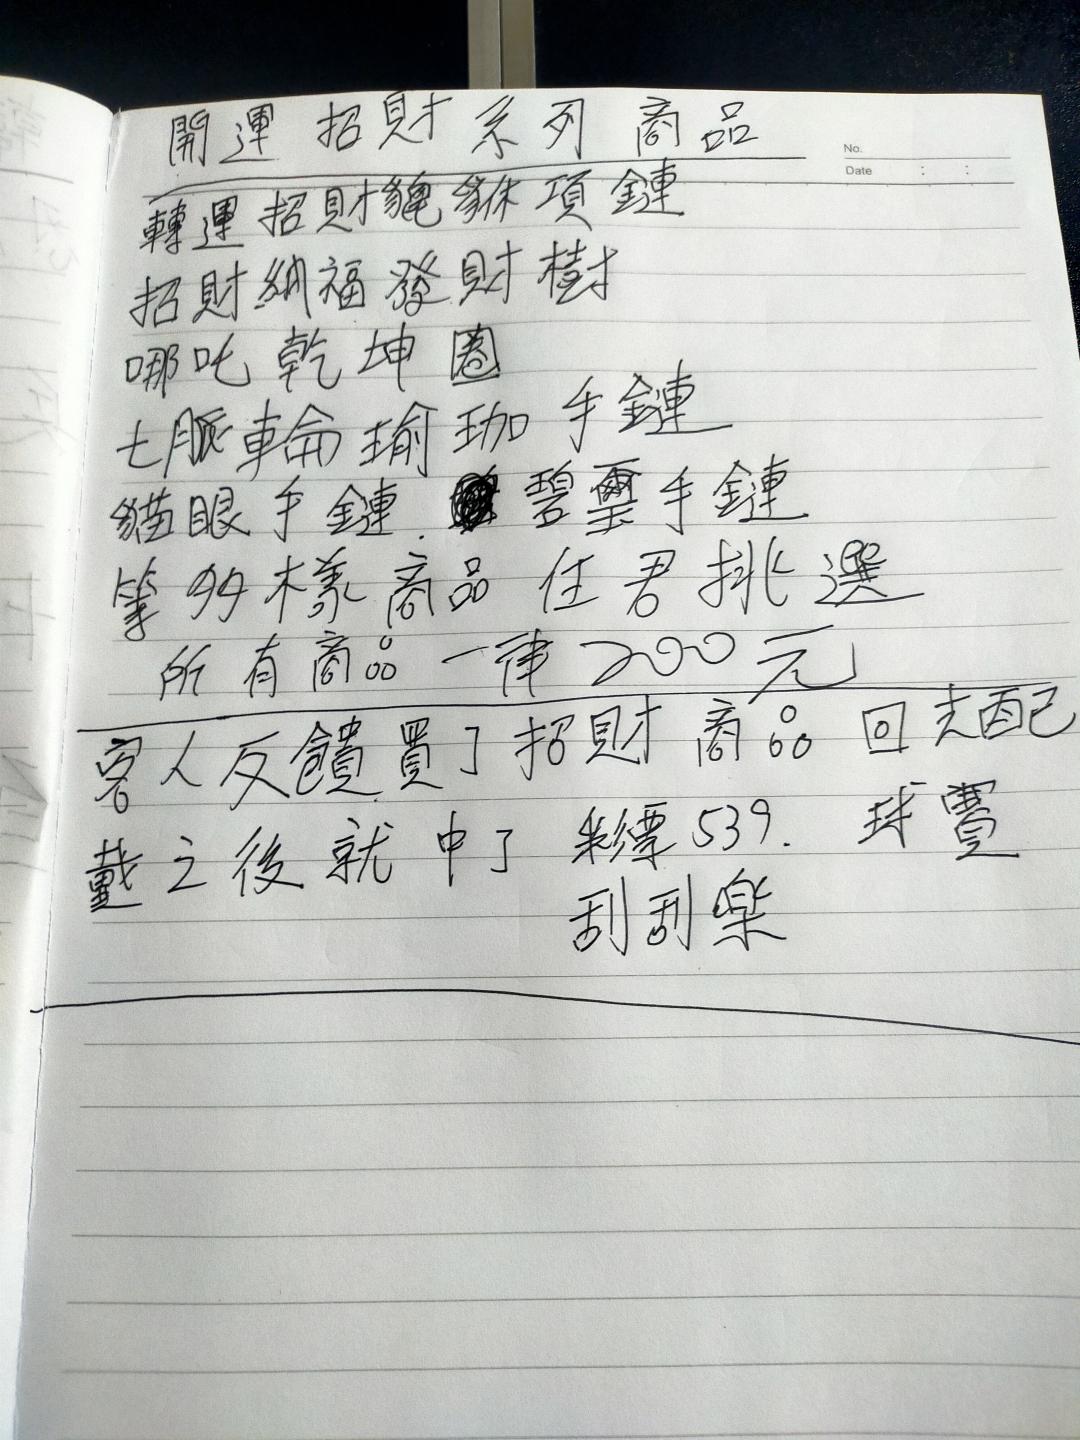 開運招財系列商品
No.
Date : :
轉運招財貔貅項鏈
招財納福發財樹
哪吒乾坤圈
七脈輪瑜珈手鏈
貓眼手鏈. 碧璽手鏈
等多樣商品任君挑選
所有商品一律200元
客人反饋買了招財商品回去配
戴之後就中了彩票539. 球賽
刮刮樂